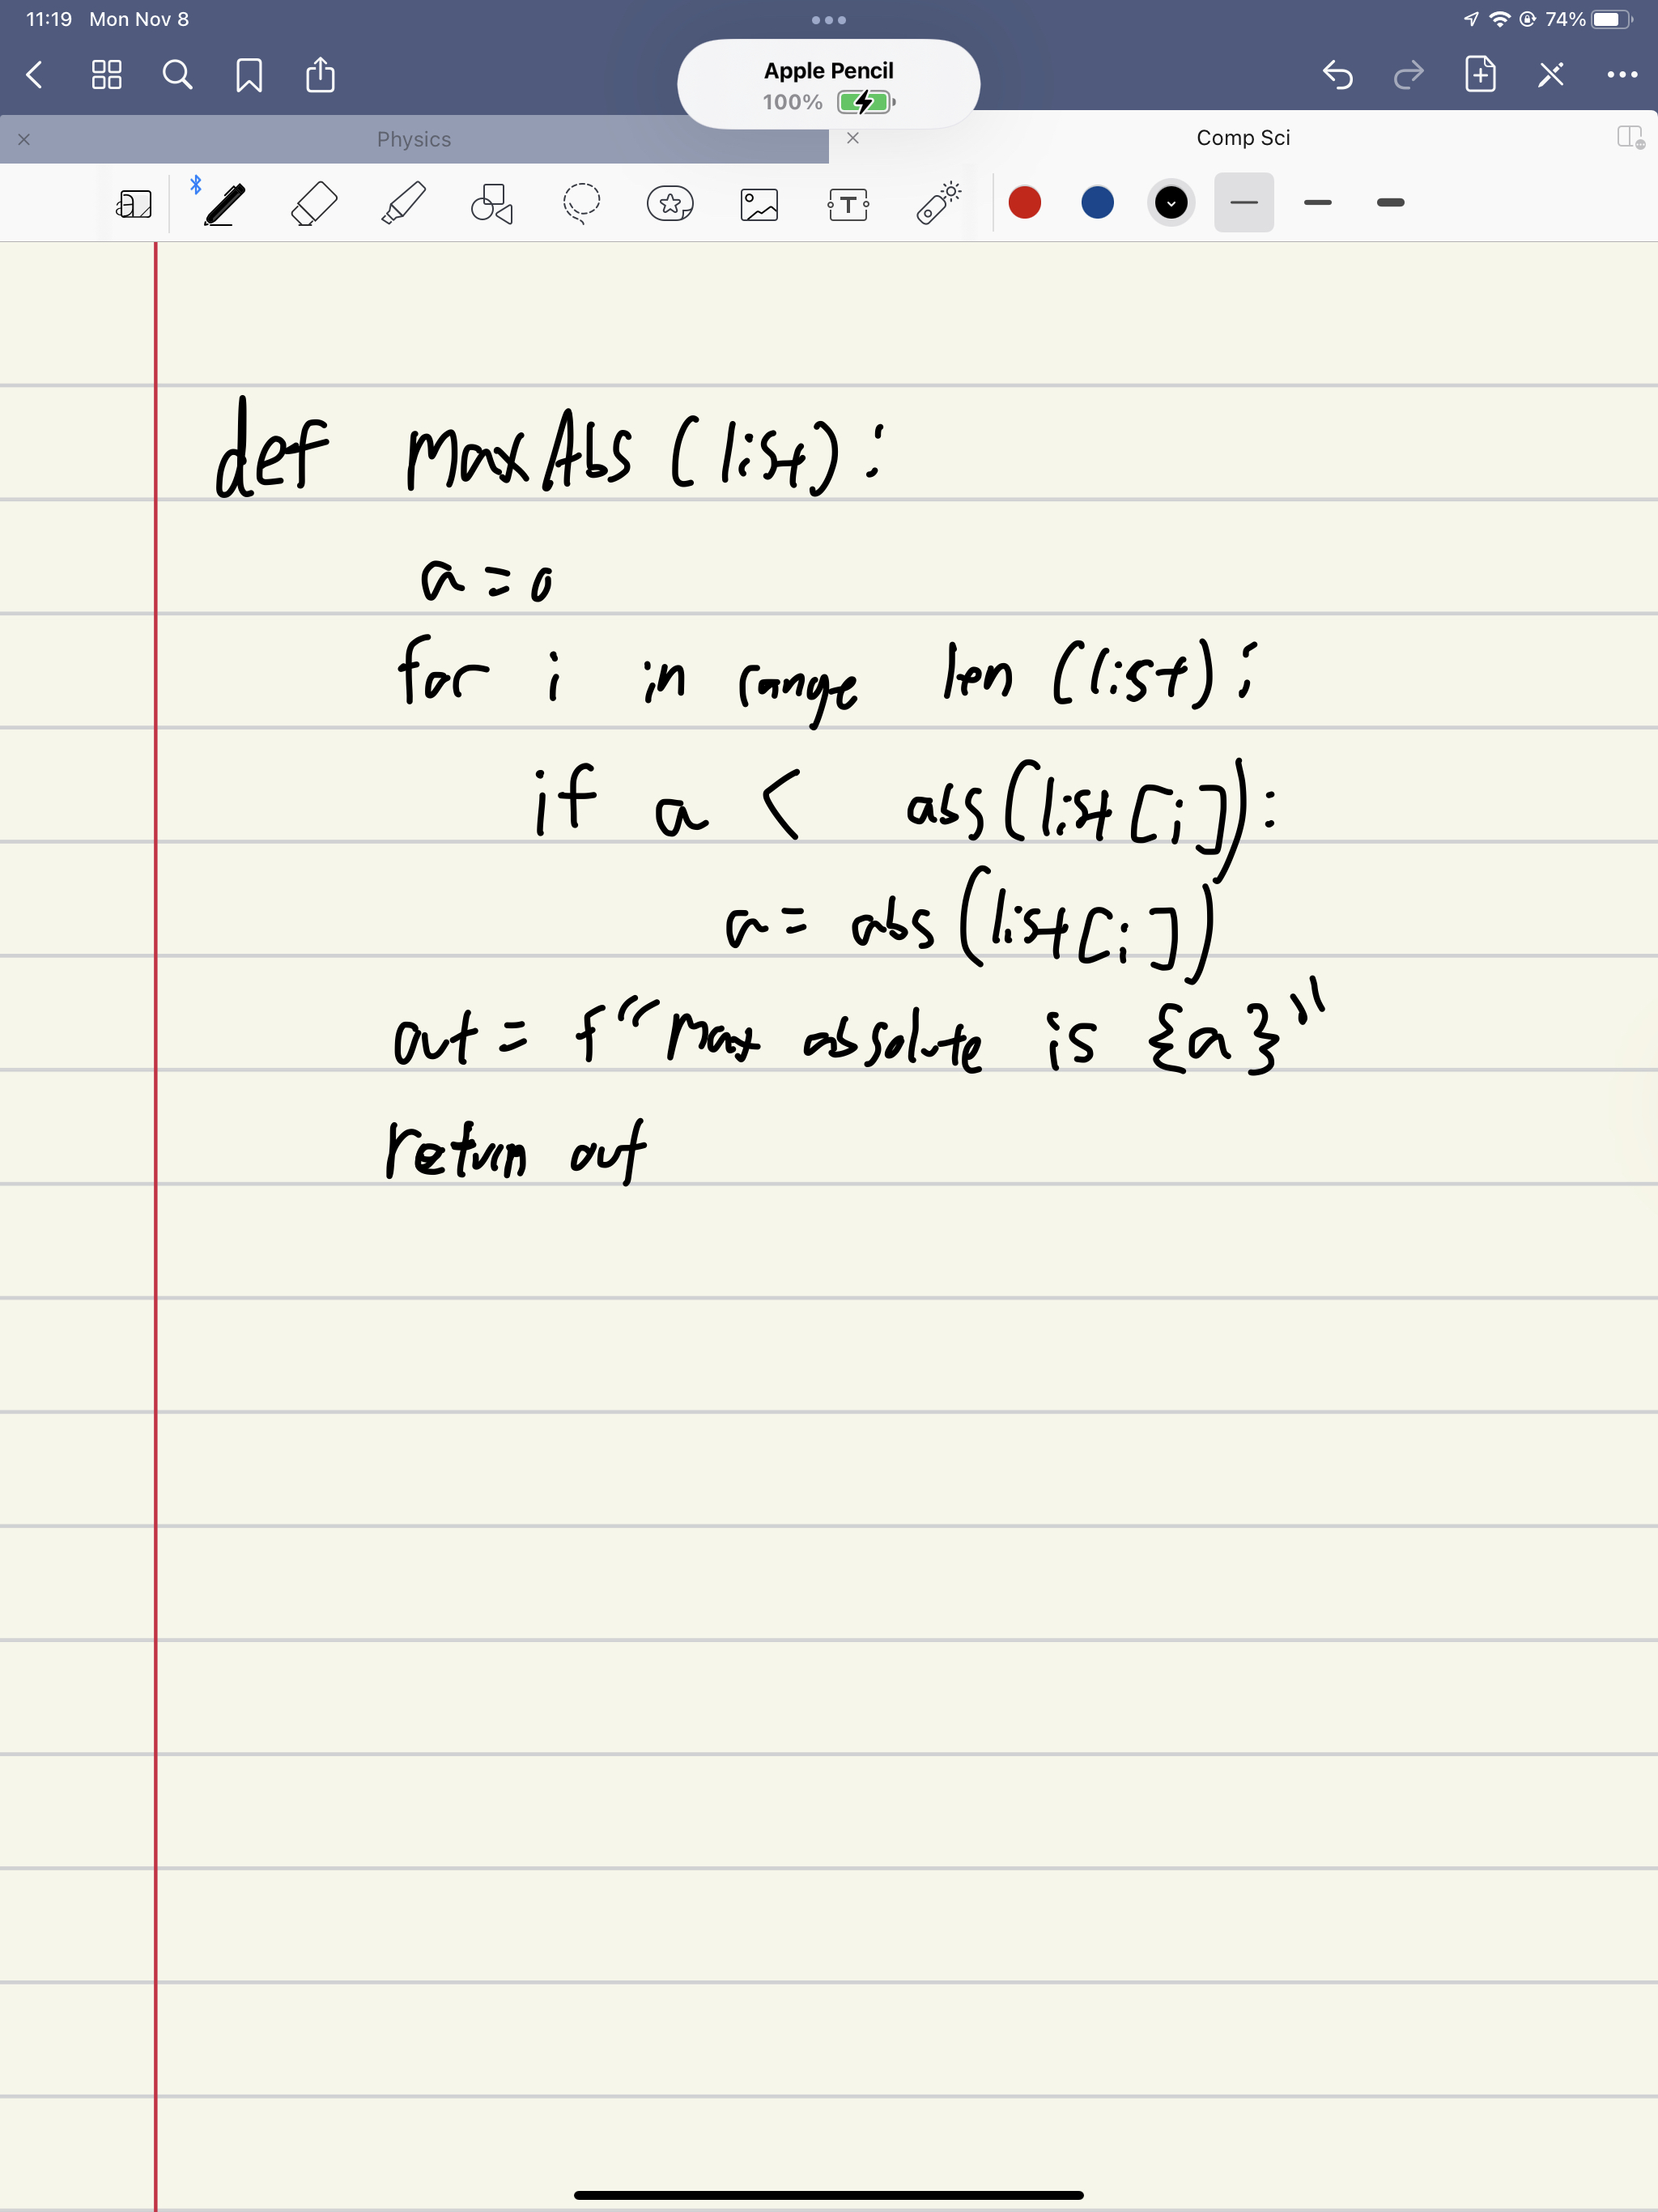 11:19 Mon Nov 8
74%
Apple Pencil
100%
Physics
Comp Sci
def maxAbs (list):
a = 0
for i in range len (list):
if a < abs(list[i]):
a = abs(list[i])
out = f"Max absolute is {a}"
return out